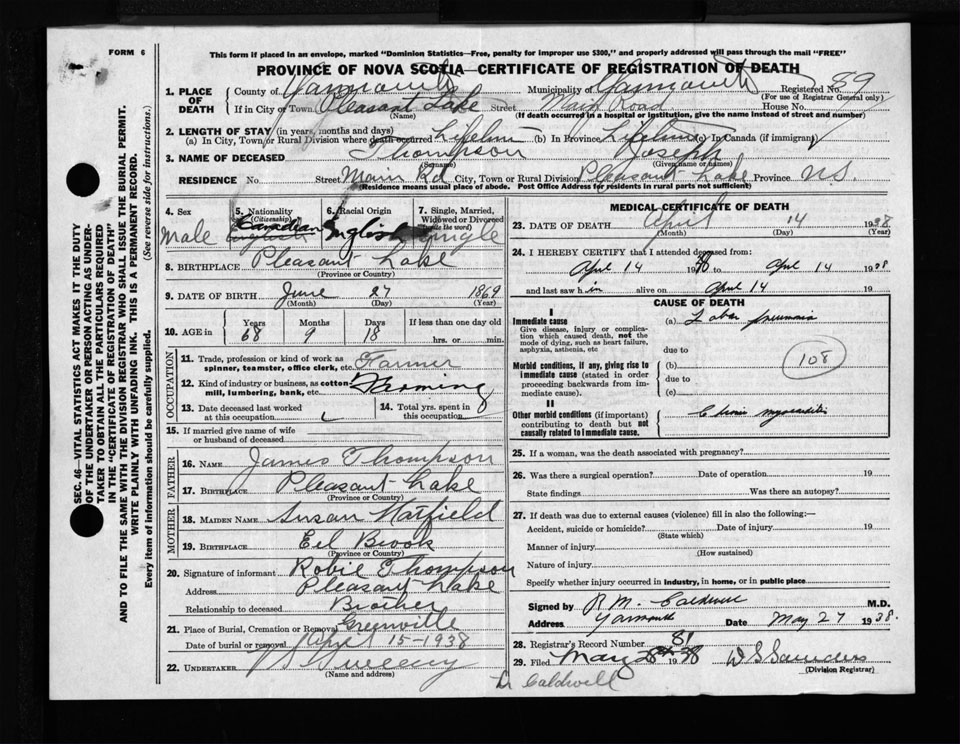 FORM 6
This form if placed in an envelope, marked "Dominion Statistics—Free, penalty for improper use $300," and properly addressed will pass through the mail "FREE"
PROVINCE OF NOVA SCOTIA—CERTIFICATE OF REGISTRATION OF DEATH
1. PLACE OF DEATH County of Yarmouth Municipality of Yarmouth Registered No. 89
(For use of Registrar General only)
If in City or Town Pleasant Lake Street Main Road House No.
(Name) (If death occurred in a hospital or institution, give the name instead of street and number)
2. LENGTH OF STAY (in years, months and days)
(a) In City, Town or Rural Division where death occurred Lifetime (b) in Province Lifetime (c) in Canada (if immigrant)
3. NAME OF DECEASED Thompson Joseph
(Surname) (Given name or names)
RESIDENCE No. Street Main Rd City, Town or Rural Division Pleasant Lake Province N.S.
(Residence means usual place of abode. Post Office Address for residents in rural parts not sufficient)
4. Sex
Male
5. Nationality (Citizenship)
Canadian
English
6. Racial Origin
English
7. Single, Married, Widowed or Divorced (write the word)
Single
8. BIRTHPLACE Pleasant Lake
(Province or Country)
9. DATE OF BIRTH June 27 1869
(Month) (Day) (Year)
10. AGE in Years Months Days If less than one day old
68 9 18 hrs. or min.
OCCUPATION
11. Trade, profession or kind of work as spinner, teamster, office clerk, etc. Farmer
12. Kind of industry or business, as cotton mill, lumbering, bank, etc. Farming
13. Date deceased last worked at this occupation
14. Total yrs. spent in this occupation
15. If married give name of wife or husband of deceased
FATHER
16. NAME James Thompson
17. BIRTHPLACE Pleasant Lake
(Province or Country)
MOTHER
18. MAIDEN NAME Susan Hatfield
19. BIRTHPLACE Eel Brook
(Province or Country)
20. Signature of informant Robie Thompson
Address Pleasant Lake
Relationship to deceased Brother
21. Place of Burial, Cremation or Removal Greenville
Date of burial or removal April 15-1938
22. UNDERTAKER Sweeny
(Name and address)
MEDICAL CERTIFICATE OF DEATH
23. DATE OF DEATH April 14 1938
(Month) (Day) (Year)
24. I HEREBY CERTIFY that I attended deceased from:
April 14 1938 to April 14 1938
and last saw him alive on April 14 19
CAUSE OF DEATH
I
Immediate cause (a) Lobar pneumonia
Give disease, injury or complication which caused death, not the mode of dying, such as heart failure, asphyxia, asthenia, etc
due to
Morbid conditions, if any, giving rise to immediate cause (stated in order proceeding backwards from immediate cause). (b)
due to
(c)
108
II
Other morbid conditions (if important) contributing to death but not causally related to immediate cause. Chronic myocarditis
25. If a woman, was the death associated with pregnancy?
26. Was there a surgical operation? Date of operation 19
State findings Was there an autopsy?
27. If death was due to external causes (violence) fill in also the following:—
Accident, suicide or homicide? Date of injury 19
(State which)
Manner of injury
(How sustained)
Nature of injury
Specify whether injury occurred in industry, in home, or in public place
Signed by R M Caldwell M.D.
Address Yarmouth Date May 27 1938.
28. Registrar's Record Number 81
29. Filed May 28th 1938 W S Saunders
(Division Registrar)
Dr Caldwell
SEC. 46—VITAL STATISTICS ACT MAKES IT THE DUTY
OF THE UNDERTAKER OR PERSON ACTING AS UNDER-
TAKER TO OBTAIN ALL THE PARTICULARS REQUIRED
IN THE "CERTIFICATE OF REGISTRATION OF DEATH"
AND TO FILE THE SAME WITH THE DIVISION REGISTRAR WHO SHALL ISSUE THE BURIAL PERMIT.
WRITE PLAINLY WITH UNFADING INK. THIS IS A PERMANENT RECORD.
Every item of information should be carefully supplied. (See reverse side for instructions.)